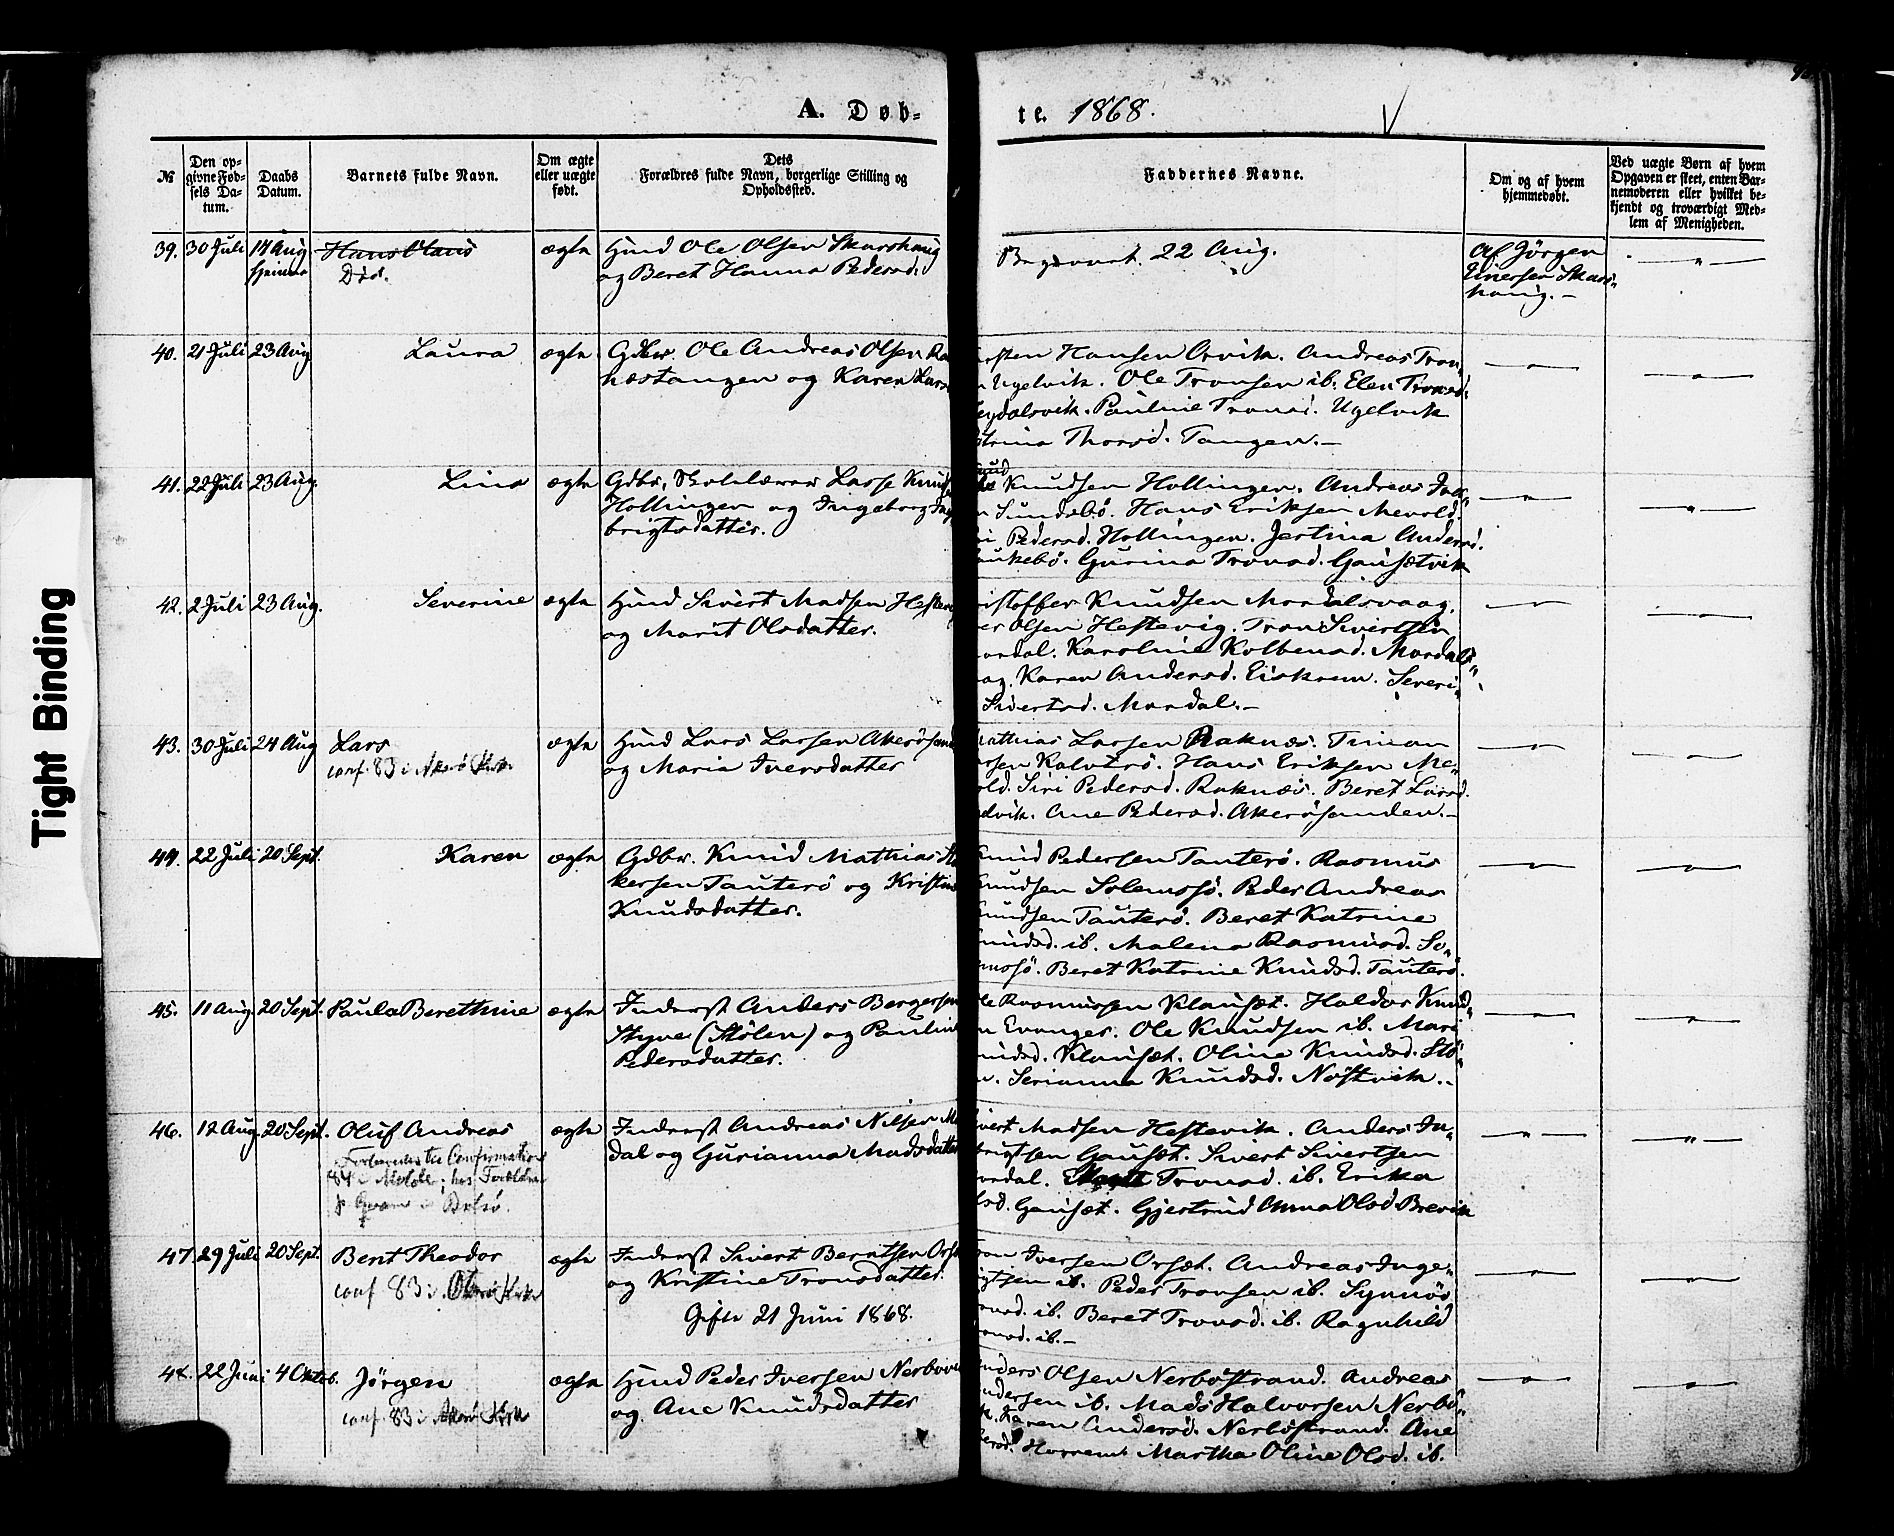 Tight Binding
A. Døb-
te. 1868.
№
Den opgivne Fødsels Datum.
Daabs Datum.
Barnets fulde Navn.
Om ægte eller uægte født.
Dets Forældres fulde Navn, borgerlige Stilling og Opholdssted.
Faddernes Navne.
Om og af hvem hjemmedøbt.
Ved uægte Børn af hvem Opgaven er skeet, enten Barnemoderen eller hvilket bekjendt og troværdigt Medlem af Menigheden.
39. 30 Juli 14 Aug hjemme
Hans Olaus
Død.
ægte
Huusmd Ole Olsen Skarshaug
og Beret Hanna Pedersd.
Begravet. 22 Aug.
Af Jørgen
Einersen Skars-
haug.
40. 21 Juli 23 Aug
Laura
ægte
Gdbr. Ole Andreas Olsen
næstangen og Karen Lars
Hansen Orvik. Andreas Tron-
Ugelvik. Ole Tronsen ib. Elen Tronsd.
Pauline Tronsd. Ugelvik
Thorsd. Tangen.
41. 22 Juli 23 Aug.
Lina
ægte
Gdbr, Skolelærer Lasse Knud
Hollingen og Ingeborg Inge
brigtsdatter.
Knudsen Hollingen. Andreas
Sundsbö. Hans Eriksen Mevold.
Pedersd. Hollingen. Jertina Andersd.
Gurina Tronsd. Gausætvik
42. 2 Juli 23 Aug.
Severine
ægte
Hmd Sivert Madsen Hestevig
og Marit Olsdatter.
istoffer Knudsen Mordalsvaag.
er Olsen Hestevig. Tron Sivertsen
ordal. Karoline Kolbensd. Mordals-
ag. Karen Andersd. Eiskrem. Severi-
Sivertsd. Mordal.
43. 30 Juli 24 Aug
Lars
conf. 83 i Akerö Kirke
ægte
Hmd Lars Larsen Akerösand
og Maria Iversdatter
athias Larsen Raknæs. Timan
rsen Kalvtrö. Hans Eriksen Me-
old. Siri Pedersd. Raknæs. Beret Larsd.
dvik. Ane Pedersd. Akerösanden.
44. 22 Juli 20 Sept.
Karen
ægte
Gdbr. Knud Mathias
kersen Tauterö og Kristine
Knudsdatter.
Knud Pedersen Tauterö. Rasmus
Knudsen Solemsö. Peder Andreas
Knudsen Tauterö. Beret Katrine
nudsd. ib. Malena Rasmusd. So-
emsö. Beret Katrine Knudsd. Tauterö.
45. 11 Aug 20 Sept.
Paula Berethine
ægte
Inderst Anders Bergersen
Styve (Stölen) og Pauline
Pedersdatter.
le Rasmussen Klauset. Haldor Knud-
n Evanger. Ole Knudsen ib. Mari
nudsd. Klauset. Oline Knudsd. Stö-
n. Serianna Knudsd. Nöstvik.
46. 12 Aug. 20 Sept.
Oluf Andreas
Confirmation
84 i Molde; hos Forældre
i Bolsö.
ægte
Inderst Andreas Nilsen Mo
dal og Gurianna Madsdatter
ivert Madsen Hestevik. Anders In-
brigtsen Gauset. Sivert Sivertsen
ordal. Tronsd. ib. Erika
lsd. Gauset. Gjertrud Anna Olsd Brevik
47. 29 Juli 20 Sept.
Bent Theodor
conf 83 i Akerö Kirke
ægte
Inderst Sivert Berntsen Ors
og Kristine Tronsdatter.
Gifte 21 Juni 1868.
ron Iversen Orset. Andreas Inge-
igtsen ib. Peder Tronsen ib. Synnös
onsd. ib. Beret Tronsd. ib. Ragnhild
onsd. ib.
48. 22 Juni 4 Oktob.
Jörgen
conf. 83 i Akerö Kirke
ægte
Hmd Peder Iversen Nerbövik
og Ane Knudsdatter
nders Olsen Nerböstrand. Andreas
ndersen ib. Mads Halvorsen Nerbö-
k. Karen Andersd. Nerböstrand. Ane
dersd. Harrem Martha Oline Olsd. ib.